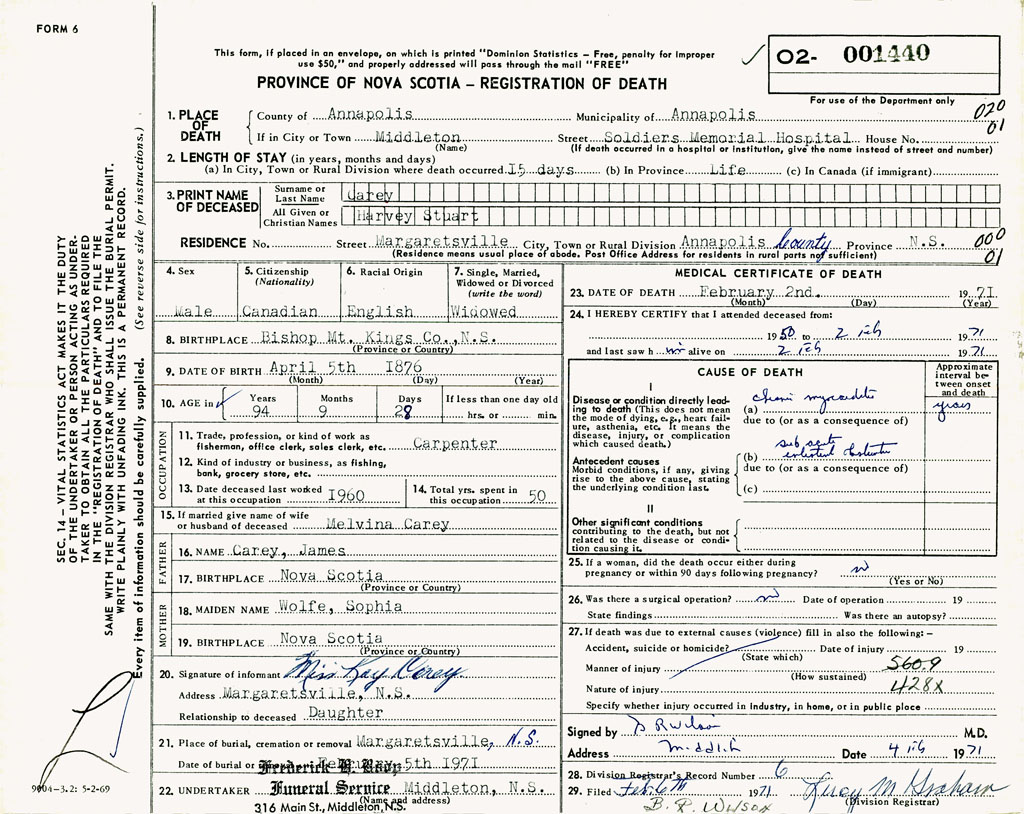 FORM 6
This form, if placed in an envelope, on which is printed "Dominion Statistics – Free, penalty for improper
use $50," and properly addressed will pass through the mail "FREE"
PROVINCE OF NOVA SCOTIA – REGISTRATION OF DEATH
O2- 001440
For use of the Department only
020
01
1. PLACE OF DEATH
County of Annapolis Municipality of Annapolis
If in City or Town Middleton Street Soldiers Memorial Hospital House No.
(Name) (If death occurred in a hospital or institution, give the name instead of street and number)
2. LENGTH OF STAY (in years, months and days)
(a) In City, Town or Rural Division where death occurred 15 days (b) In Province Life (c) In Canada (if immigrant)
3. PRINT NAME OF DECEASED
Surname or Last Name Carey
All Given or Christian Names Harvey Stuart
RESIDENCE No. Street Margaretsville City, Town or Rural Division Annapolis County Province N.S.
(Residence means usual place of abode. Post Office Address for residents in rural parts not sufficient)
000
01
4. Sex
Male
5. Citizenship
(Nationality)
Canadian
6. Racial Origin
English
7. Single, Married,
Widowed or Divorced
(write the word)
Widowed
8. BIRTHPLACE Bishop Mt. Kings Co.,N.S.
(Province or Country)
9. DATE OF BIRTH April 5th 1876
(Month) (Day) (Year)
10. AGE in
Years 94
Months 9
Days 28
If less than one day old
hrs. or min.
OCCUPATION
11. Trade, profession, or kind of work as
fisherman, office clerk, sales clerk, etc. Carpenter
12. Kind of industry or business, as fishing,
bank, grocery store, etc.
13. Date deceased last worked
at this occupation 1960
14. Total yrs. spent in
this occupation 50
15. If married give name of wife
or husband of deceased Melvina Carey
FATHER
16. NAME Carey, James
17. BIRTHPLACE Nova Scotia
(Province or Country)
MOTHER
18. MAIDEN NAME Wolfe, Sophia
19. BIRTHPLACE Nova Scotia
(Province or Country)
20. Signature of informant Miss Kay Carey
Address Margaretsville, N.S.
Relationship to deceased Daughter
21. Place of burial, cremation or removal Margaretsville, N.S.
Date of burial or February 5th 1971
Funeral Service
22. UNDERTAKER Middleton, N.S.
(Name and address)
316 Main St., Middleton, N.S.
MEDICAL CERTIFICATE OF DEATH
23. DATE OF DEATH February 2nd. 1971
(Month) (Day) (Year)
24. I HEREBY CERTIFY that I attended deceased from:
1950 to 2 Feb 1971
and last saw him alive on 2 Feb 1971
CAUSE OF DEATH
Approximate
interval be-
tween onset
and death
I
Disease or condition directly lead-
ing to death (This does not mean
the mode of dying, e.g., heart fail-
ure, asthenia, etc. It means the
disease, injury, or complication
which caused death.)
(a) myocarditis years
due to (or as a consequence of)
Antecedent causes
Morbid conditions, if any, giving
rise to the above cause, stating
the underlying condition last.
(b) sub acute
due to (or as a consequence of)
(c)
II
Other significant conditions
contributing to the death, but not
related to the disease or condi-
tion causing it.
25. If a woman, did the death occur either during
pregnancy or within 90 days following pregnancy?
(Yes or No)
26. Was there a surgical operation? no Date of operation 19
State findings Was there an autopsy?
27. If death was due to external causes (violence) fill in also the following:–
Accident, suicide or homicide? Date of injury 19
(State which)
Manner of injury 560.9
(How sustained)
Nature of injury 428X
Specify whether injury occurred in industry, in home, or in public place
Signed by D R Wilson M.D.
Address Date 4 Feb 1971
28. Division Registrar's Record Number 6
29. Filed Feb 6th 1971
(Division Registrar)
B. R. WILSON
SEC. 14 – VITAL STATISTICS ACT MAKES IT THE DUTY
OF THE UNDERTAKER OR PERSON ACTING AS UNDER-
TAKER TO OBTAIN ALL THE PARTICULARS REQUIRED
IN THE "REGISTRATION OF DEATH" AND TO FILE THE
SAME WITH THE DIVISION REGISTRAR WHO SHALL ISSUE THE BURIAL PERMIT.
WRITE PLAINLY WITH UNFADING INK. THIS IS A PERMANENT RECORD.
Every item of information should be carefully supplied. (See reverse side for instructions.)
9004-3.2: 5-2-69